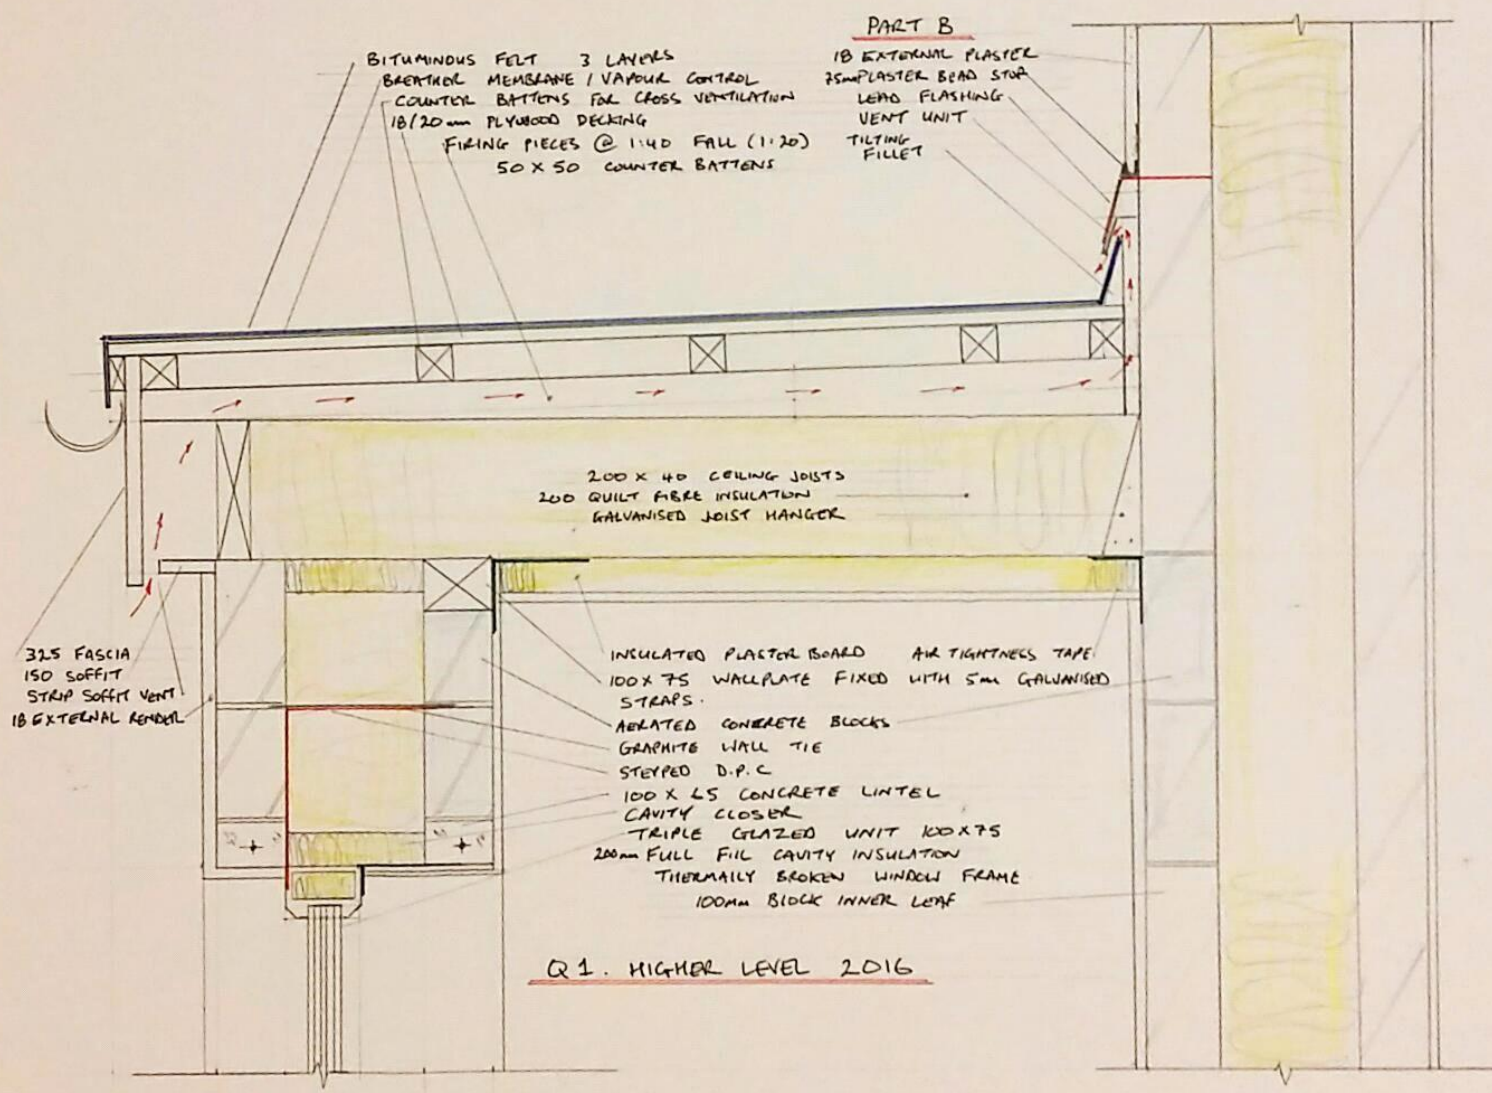 PART B
BITUMINOUS FELT 3 LAYERS
BREATHER MEMBRANE / VAPOUR CONTROL
COUNTER BATTENS FOR CROSS VENTILATION
18/20mm PLYWOOD DECKING
FIRING PIECES @ 1:40 FALL (1:20)
50 X 50 COUNTER BATTENS
18 EXTERNAL PLASTER
75mm PLASTER BEAD STOP
LEAD FLASHING
VENT UNIT
TILTING
FILLET
200 X 40 CEILING JOISTS
200 QUILT FIBRE INSULATION
GALVANISED JOIST HANGER
325 FASCIA
150 SOFFIT
STRIP SOFFIT VENT
18 EXTERNAL RENDER
INSULATED PLASTER BOARD AIR TIGHTNESS TAPE
100 X 75 WALLPLATE FIXED WITH 5mm GALVANISED
STRAPS.
AERATED CONCRETE BLOCKS
GRAPHITE WALL TIE
STEPPED D.P.C
100 X 65 CONCRETE LINTEL
CAVITY CLOSER
TRIPLE GLAZED UNIT 100X75
200mm FULL FILL CAVITY INSULATION
THERMALLY BROKEN WINDOW FRAME
100mm BLOCK INNER LEAF
Q1. HIGHER LEVEL 2016